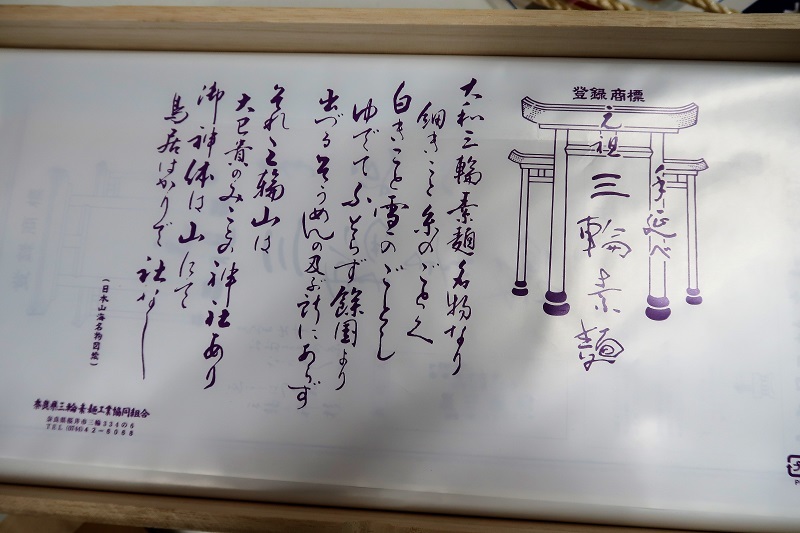 登録商標
元祖
手延べ
三輪素麺
大和三輪素麺名物なり
細きこと糸のごとく
白きこと雪のごとし
ゆでてふとらず餘國より
出づるそうめんの及ぶ所にあらず
それ三輪山は
大己貴のみことの神社あり
御神体は山にて
鳥居ばかりで社なし
(日本山海名物図絵)
奈良県三輪素麺工業協同組合
奈良県桜井市三輪334の6
TEL (0744) 42-6068